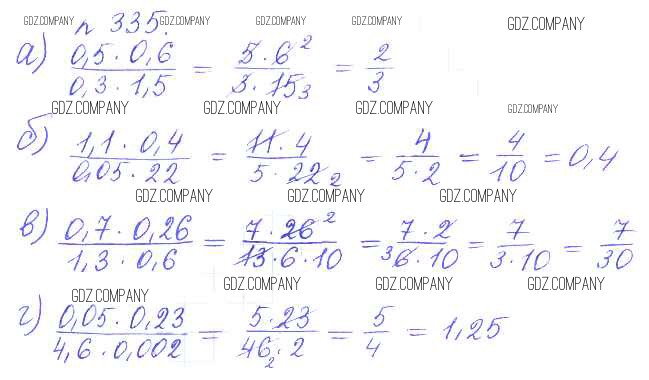 GDZ.COMPANY GDZ.COMPANY GDZ.COMPANY GDZ.COMPANY GDZ.COMPANY
n 335.
а) 0,5 · 0,6 / 0,3 · 1,5 = 5 · 6 2 / 3 · 15 3 = 2/3
GDZ.COMPANY GDZ.COMPANY GDZ.COMPANY GDZ.COMPANY
б) 1,1 · 0,4 / 0,05 · 22 = 11 · 4 / 5 · 22 2 = 4 / 5 · 2 = 4/10 = 0,4
GDZ.COMPANY GDZ.COMPANY GDZ.COMPANY
в) 0,7 · 0,26 / 1,3 · 0,6 = 7 · 26 2 / 13 · 6 · 10 = 7 · 2 / 3 6 · 10 = 7 / 3 · 10 = 7/30
GDZ.COMPANY GDZ.COMPANY GDZ.COMPANY GDZ.COMPANY
г) 0,05 · 0,23 / 4,6 · 0,002 = 5 · 23 / 46 2 · 2 = 5/4 = 1,25